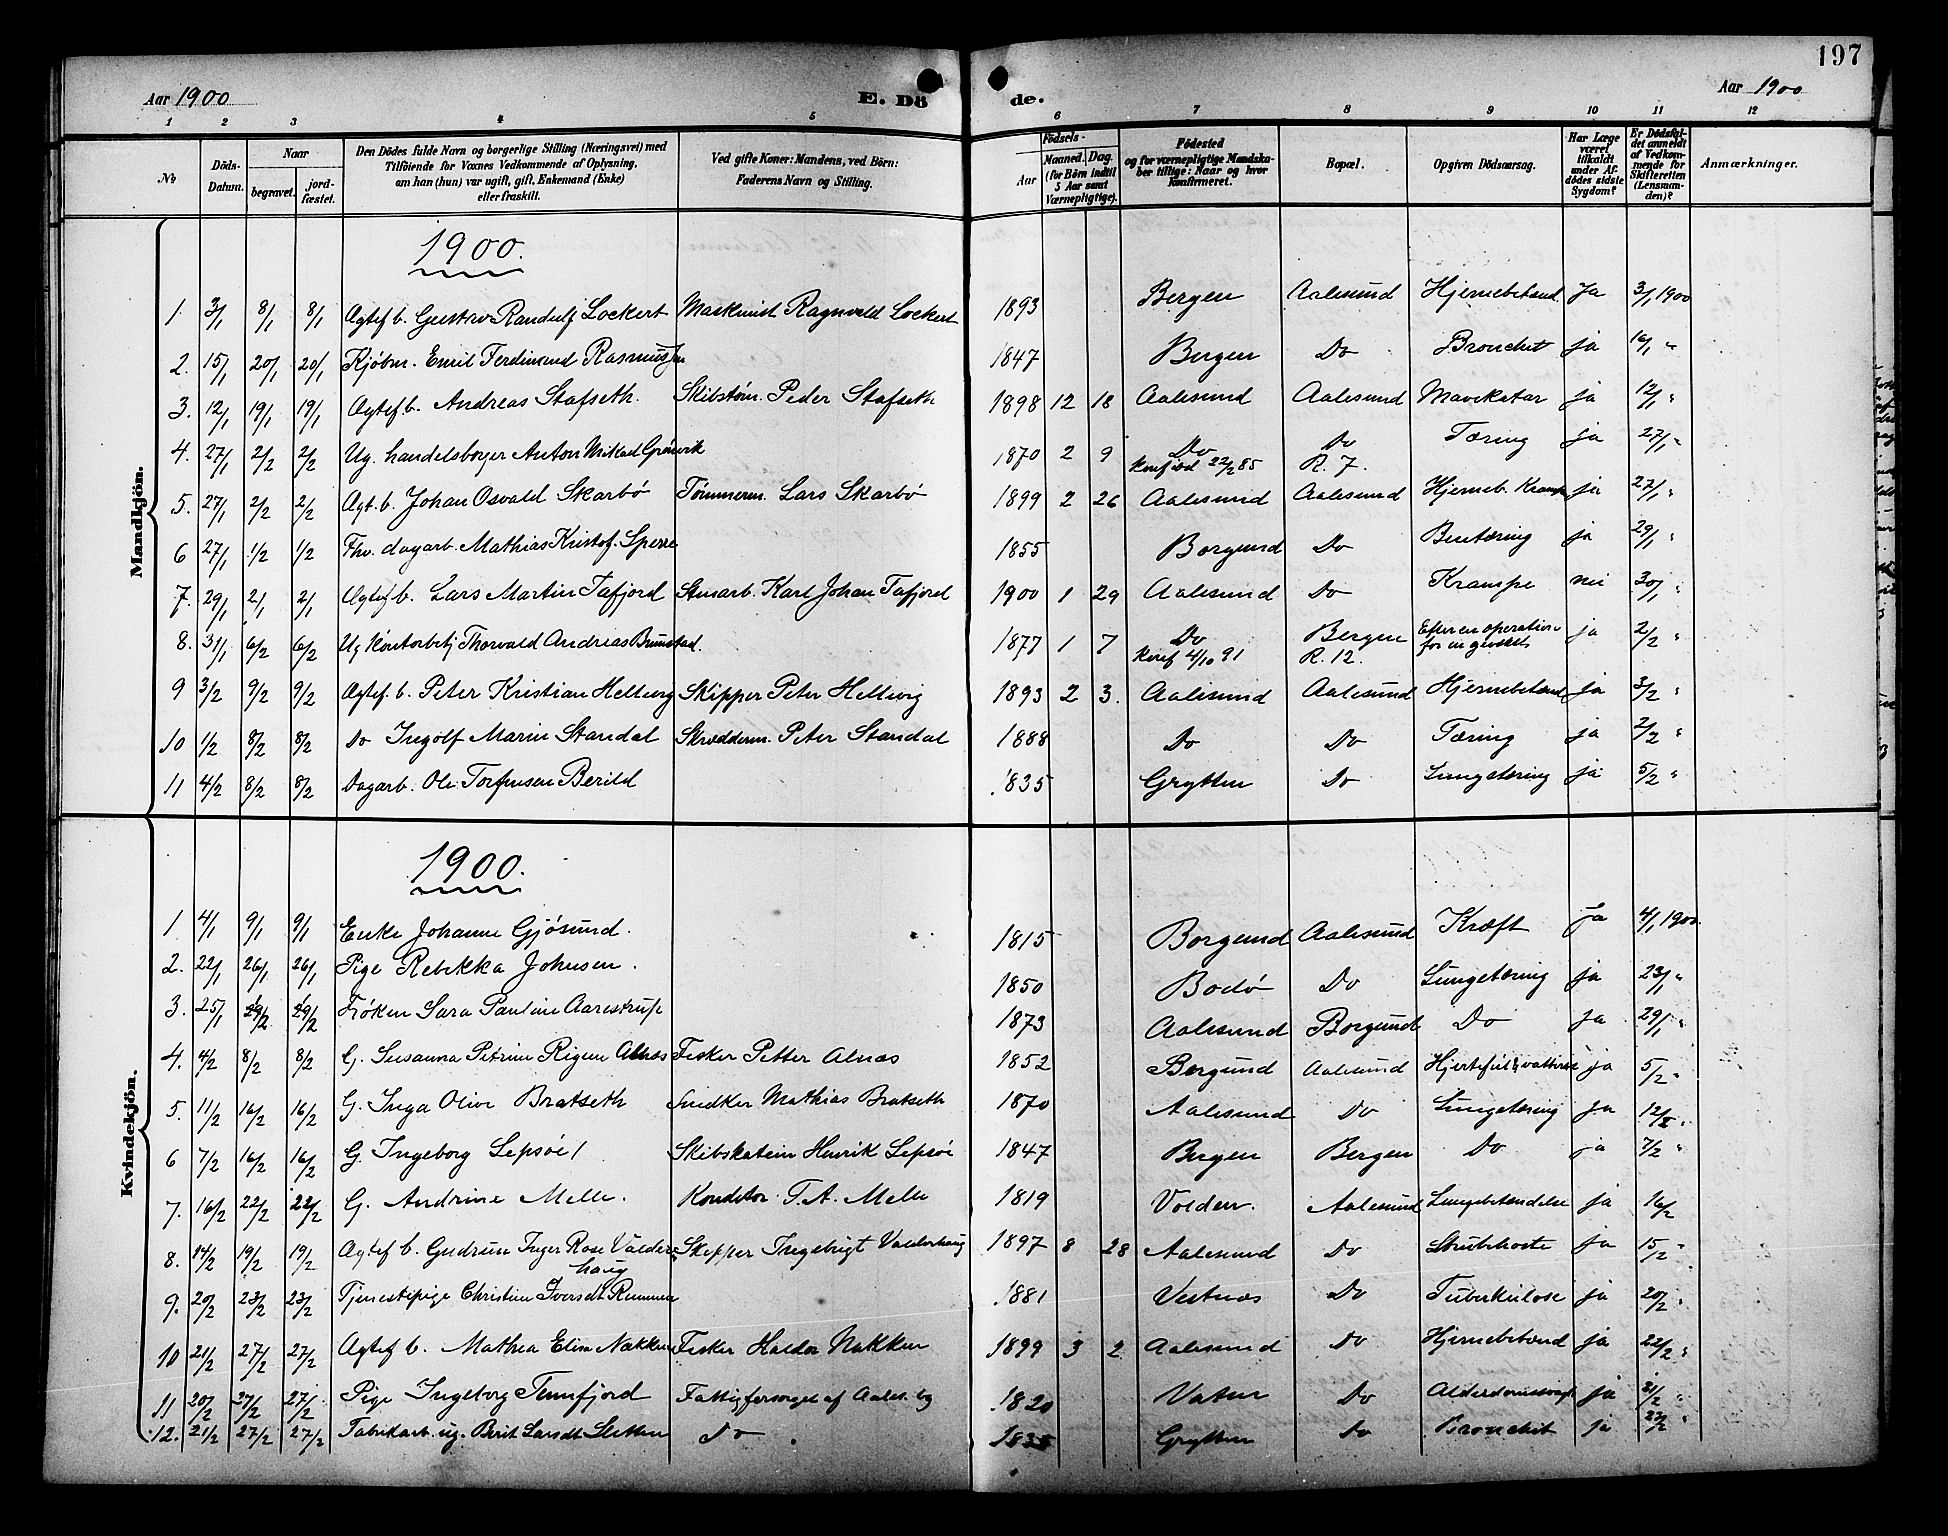 197
Aar 1900
E. Dö
de.
Aar 1900
1 2 3 4 5 6 7 8 9 10 11 12
№
Döds-Datum.
Naar
begravet.
jord-fæstet.
Den Dödes fulde Navn og borgerlige Stilling (Næringsvei) med
Tilföiende for Voxnes Vedkommende af Oplysning,
om han (hun) var ugift, gift, Enkemand (Enke)
eller fraskilt.
Ved gifte Koner: Mandens, ved Börn:
Faderens Navn og Stilling.
Födsels-
Aar
Maaned. Dag.
(for Börn indtil
5 Aar samt
Værnepligtige).
Födested
og for værnepligtige Mandska-
ber tillige: Naar og hvor
konfirmeret.
Bopæl.
Opgiven Dödsaarsag.
Har Læge
været
tilkaldt
under Af-
dödes sidste
Sygdom?
Er Dödsfal-
det anmeldt
af Vedkom-
mende for
Skifteretten
(Lensman-
den)?
Anmærkninger.
Mandkjön.
1900.
1. 3/1 8/1 8/1 Ægtef b. Gustav Randulf Lockert Maskinist Ragnvald Lockert 1893 Bergen Aalesund Hjernebetænd Ja 3/1 1900
2. 15/1 20/1 20/1 Kjøbm. Emil Ferdinand Rasmussen 1847 Bergen Do Bronchit ja 16/1 "
3. 12/1 19/1 19/1 Ægtef. b. Andreas Stafseth. Skibstøm. Peder Stafseth 1898 12 18 Aalesund Aalesund Mavekatar ja 12/1 "
4. 27/1 2/2 2/2 Ug. handelsborger Anton Mikael Grønvik 1870 2 9 Do Do Tæring ja 27/1 "
Konf 22/2 85 R. 7.
5. 27/1 2/2 2/2 Ægt. b. Johan Osvald Skarbø Tømmerm. Lars Skarbø 1899 2 26 Aalesund Aalesund Hjerneb. Krampe ja 27/1 "
6 27/1 1/2 1/2 Fhv. dagarb. Mathias Kristof. Sperre 1855 Borgund Do Bentæring ja 29/1 "
7. 29/1 2/1 2/1 Ægtef b. Lars Martin Tafjord Stuearb. Karl Johan Tafjord 1900 1 29 Aalesund Do Krampe nei 30/1 "
8. 31/1 6/2 6/2 Ug Kontorbetj Thorvald Andreas Brunstad. 1877 1 7 Do Bergen Efter en operation ja 2/2 "
Konf 4/10 91 R. 12. for en gevækst
9 3/2 9/2 9/2 Ægtef. b. Peter Kristian Hellwig Skipper Peter Hellwig 1893 2 3. Aalesund Aalesund Hjernebetænd ja 3/2 "
10 1/2 8/2 8/2 Do Ingolf Marin Standal Skrædderm. Peter Standal 1888 Do Do Tæring ja 2/2 "
11 4/2 8/2 8/2 Dagarb. Ole Torfinsen Berild 1835 Grytten Do Lungetæring ja 5/2 "
Kvindekjön.
1900.
1 4/1 9/1 9/1 Enke Johanne Gjøsund. 1815 Borgund Aalesund Kræft Ja 4/1 1900
2. 22/1 26/1 26/1 Pige Rebekka Johnsen. 1850 Bodø Do Lungetæring ja 23/1 "
3. 25/1 29/2 29/2 Frøken Sara Pauline Aarestrup 1873 Aalesund Borgund Do Ja 29/1 "
4. 4/2 8/2 8/2 G. Susanna Petrine Rigen Alnæs Fisker Petter Alnæs 1852 Borgund Aalesund Hjertefeil ja 5/2 "
5. 11/2 16/2 16/2 G. Inga Olive Bratseth Snedker Mathias Bratseth 1870 Aalesund Do Lungetæring Ja 12/2 "
6 7/2 16/2 16/2 G. Ingeborg Lepsøe Henrik Lepsøe 1847 Bergen Bergen Do ja 7/2 "
7. 16/2 22/2 22/2 G. Andrine Melle. Konditor T. A. Melle 1819 Volden Aalesund Lungebetændelse ja 16/2
8. 14/2 19/2 19/2 Ægtef b. Gudrun Inger Rose Valder- Skipper Ingebrigt Valderhaug 1897 8 28 Aalesund Do Strubehoste ja 15/2 "
haug
9. 20/2 23/2 23/2 Tjenestepige Christine Iversdt Remmem 1881 Vestnæs Do Tuberkulose ja 20/2 "
10 21/2 27/2 27/2 Ægtef b. Mathea Elise Nakken Fisker Haldor Nakken 1899 3 2 Aalesund Do Hjernebetænd ja 22/2 "
11 20/2 27/2 27/2 Pige Ingeborg Tennfjord Fattigforsørget af Aales. by 1820 Vatne Do Alderdomssvagh ja 21/2 "
12. 21/2 27/2 27/2 Fabrikarb. ug. Berit Larsdt Sletten Do 1835 Grytten Do Bronchit ja 22/2 "